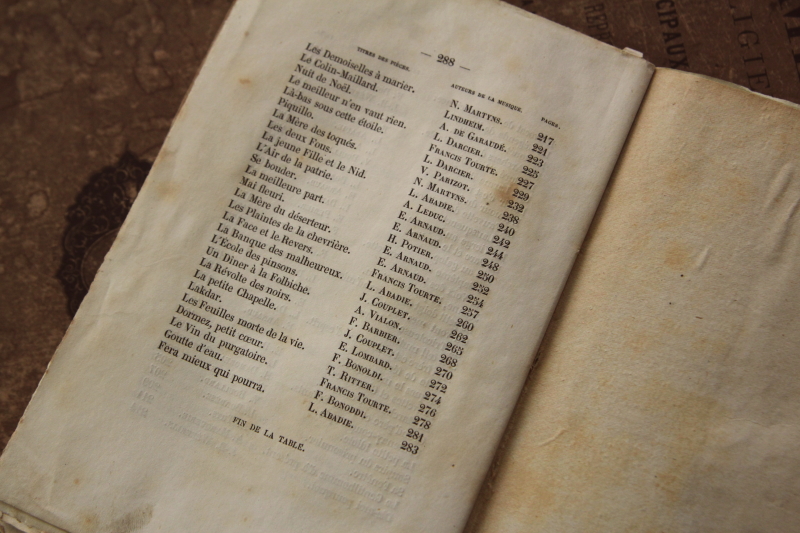 — 288 —
TITRES DES PIÈCES. AUTEURS DE LA MUSIQUE. PAGES.
Les Demoiselles à marier. N. MARTYNS. 217
Le Colin-Maillard. LINDHEIM. 221
Nuit de Noël. A. DE GARAUDÉ. 223
Le meilleur n'en vaut rien. L. DARCIER. 225
Là-bas sous cette étoile. FRANCIS TOURTE. 227
Piquillo. L. DARCIER. 229
La Mère des toqués. V. PARIZOT. 232
Les deux Fous. N. MARTYNS. 238
La jeune Fille et le Nid. L. ABADIE. 240
L'Air de la patrie. A. LEDUC. 242
Se bouder. E. ARNAUD. 244
La meilleure part. E. ARNAUD. 248
Mai fleuri. H. POTIER. 250
La Mère du déserteur. E. ARNAUD. 252
Les Plaintes de la chevrière. E. ARNAUD. 254
La Face et le Revers. FRANCIS TOURTE. 257
La Banque des malheureux. L. ABADIE. 260
L'École des pinsons. J. COUPLET. 262
Un Dîner à la Folbiche. A. VIALON. 265
La Révolte des noirs. F. BARBIER. 268
La petite Chapelle. J. COUPLET. 270
Lakdar. E. LOMBARD. 272
Les Feuilles morte de la vie. F. BONOLDI. 274
Dormez, petit cœur. T. RITTER. 276
Le Vin du purgatoire. FRANCIS TOURTE. 278
Goutte d'eau. F. BONODDI. 281
Fera mieux qui pourra. L. ABADIE. 283
FIN DE LA TABLE.